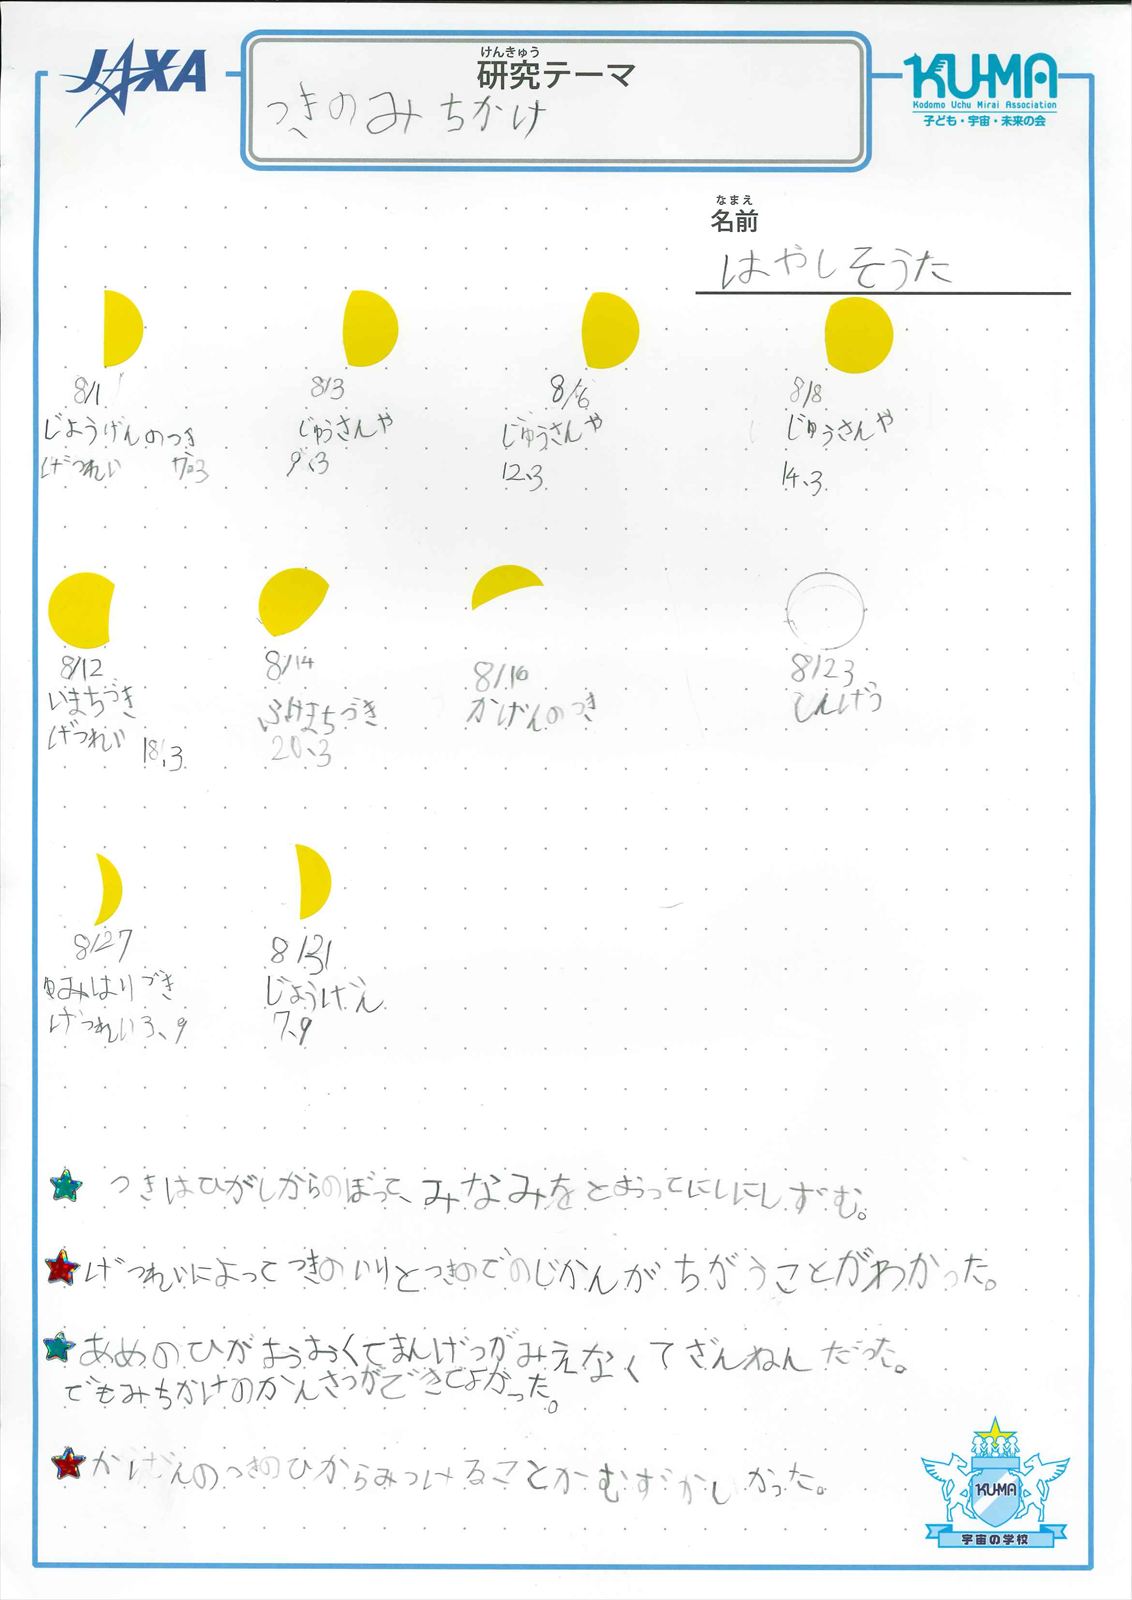 JAXA
けんきゅう
研究テーマ
つきのみちかけ
KU-MA
Kodomo Uchu Mirai Association
子ども・宇宙・未来の会
なまえ
名前
はやしそうた
8/1
じようげんのつき
げつれい 7.3
8/3
じゅうさんや
9.3
8/6
じゅうさんや
12.3
8/8
じゅうさんや
14.3
8/12
いまちづき
げつれい 18.3
8/14
ふけまちづき
20.3
8/16
かげんのつき
8/23
8/27
ゆみはりづき
げつれい3.9
8/31
じょうげん
7.9
つきはひがしからのぼって、みなみをとおってにしにしずむ。
げつれいによってつきのいりとつきのでのじかんがちがうことがわかった。
あめのひがおおくてまんげつがみえなくてざんねんだった。
でもみちかけのかんさつができてよかった。
かげんのつきのひからみつけることかむずかしかった。
KU-MA
宇宙の学校